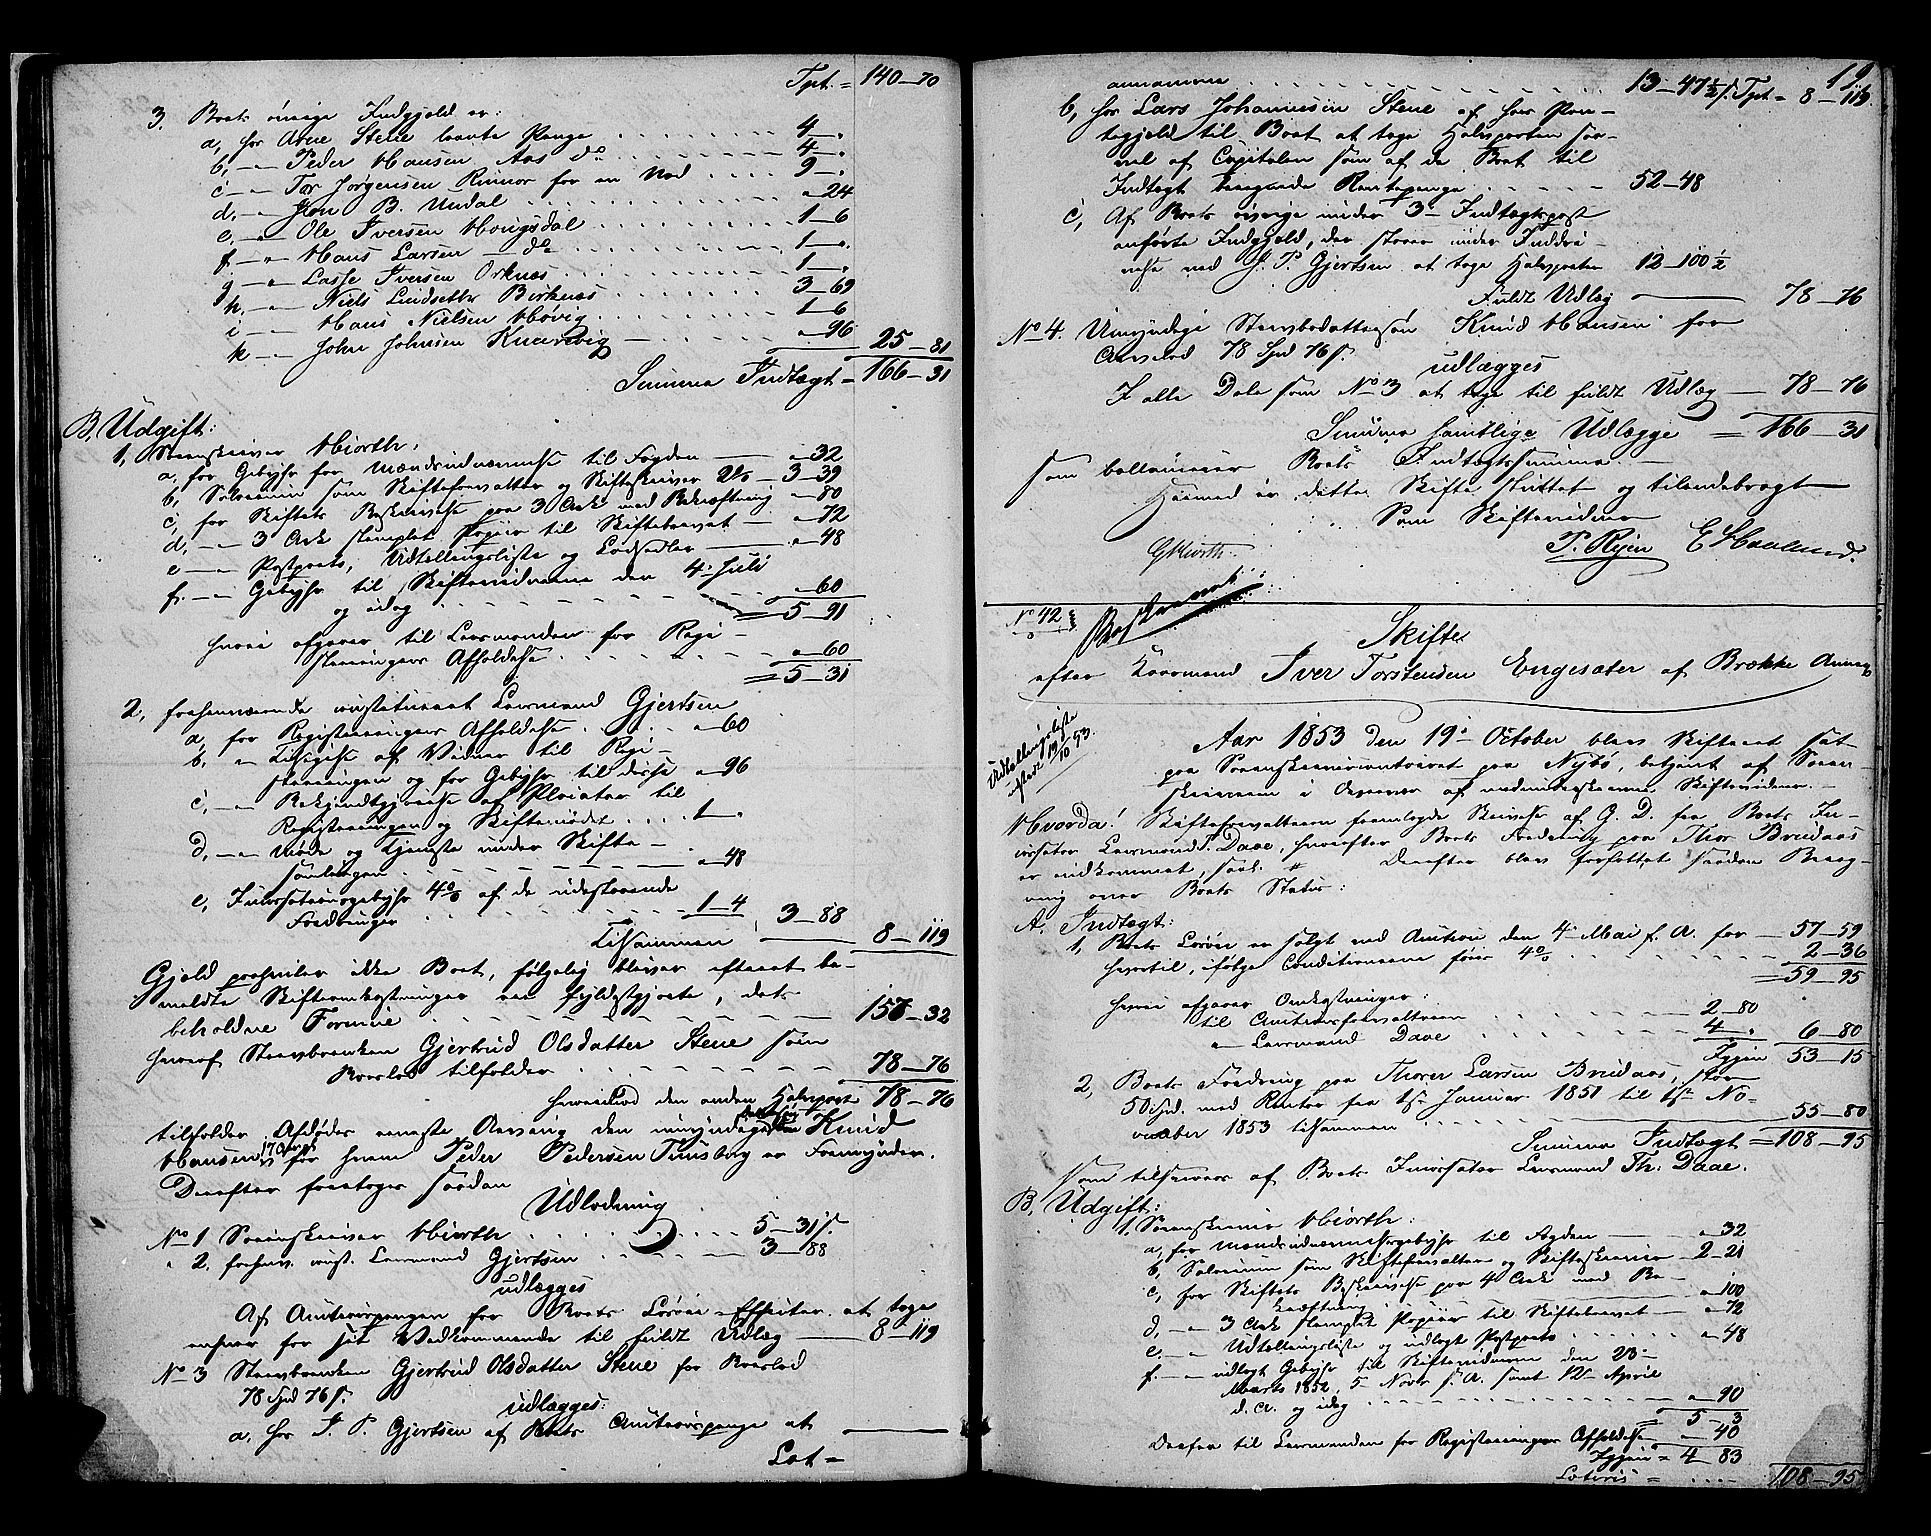 Tpt. = 140-70
3. Boets øvrige Indgjeld er:
a, hos Arne Stene laante Penge . . . 4-"
b, -"- Peder Hansen Aas do . . . 4-"
c -"- Tor Jørgensen Rinnor for en Nod . . . . 9-"
d, -"- Jon B. Undal . . . "-24
e, -"- Ole Iversen Hougsdal . . . 1-6
f -"- Hans Larsen - do . . . 1-"
g -"- Lasse Iversen Orknæs . . . 1-"
h, -"- Niels Lindsetbr Birknæs . . . 3-69
i -"- Hans Nielsen Høvig . . . 1-6
k -"- John Johnsen Knarrvig - . . . "-96 25-81
Summa Indtægt = 166-31
B, Udgift:
1, Sorenskriver Hiorth,
a, for Gebyhr for Mændsudnævnelse til Fogden - "-32
b, Salarium som Skifteforvalter og Skifteskriver 2do - 3-39
c, for Skiftets Beskrivelse paa 3 Ark med Bekræftning "-80
d, -"- 3 Ark stemplet Papiir til Skiftebrevet - "-72
e -"- Postporto, Udtællingsliste og Lodsedler - "-48
f. -"- Gebyhr til Skiftevidnerne den 4de Juli
og idag . . . "-60
= 5-91
hvori afgaaer til Lensmanden for Regi-
streringens Afholdelse . . . "-60
= 5-31
2, forhenværende constitueret Lensmand Gjertsen
a, for Registreringens Afholdelse . . . "-60
b, " Tilsigelse af Vidner til Regi-
streringen og for Gebyhr til disse "-96
c, -"- Bekjendtgjørelse af Placater til
Registreringen og Skiftemødet . . . . 1-"
d, -"- Møde og Tjeneste under Skifte-
samlingen . . . "-48
e, Incassationsgebyhr 4% af de udestaaende
Fordringer . . . 1-4 3-88
Tilsammen - 8-119
Gjeld præsenter ikke Boet, følgelig bliver efterat be-
meldte Skifteomkostninger ere fyldestgjorte, dets
beholdne Formue . . . 157-32
hvoraf Stervboenken Gjertrud Olsdatter Stene som
Boeslod tilfolder . . . 78-76
hvorimod den anden Halvpart 78-76
tilfolder Afdødes eneste Arving den umyndige Knud
Hansen for hvem Peder Pedersen Tunsberg er Formynder.
Derefter foretoges saadan
Udlodning
No 1 Sorenskriver Hiorth . . . 5-31 s.
" 2. forhenv. const. Lensmand Gjertsen . . . 3-88
udlægges
Af Auctionspengene for Boets Løsøre-Effecter at tage
enhver for sit Vedkommende til fuldt Udlæg - 8-119
No 3 Stervboenken Gjertrud Olsdatter Stene for Boeslod
78 Spd 76 s.
udlægges:
a, hos J. P. Gjertsen af Boets Auctionspenge at -
Lat =
19
annamme . . . 13-47½ s. Tpt = 8-119
b, hos Lars Johannesen Stene af hans Pan-
tegjeld til Boet at tage Halvparten saa-
vel af Capitalen som af de Boet til
Indtægt beregnede Rentepenge . . . 52-48
c, Af Boets øvrige under 3die Indtægtspost
anførte Indgjeld, der staaer under Inddri-
velse ved J. P. Gjertsen at tage Halvparten 12-100½
Fuldt Udlæg - 78-76
No 4. Umyndige Stervbodattersøn Knud Hansen for
Arvelod 78 Spd 76 s.
udlægges
I alle Dele som No 3 at tage til fuldt Udlæg - 78-76
Summa samtlige Udlægge = 166-31
som ballancerer Boets Indtægtssumma. -
Hermed er dette Skifte sluttet og tilendebragt
Som Skiftevidner
GHiorth. P. Ryen E Haaland.
No 42
Beskreven
Skifte
efter Kaarmand Iver Torstensen Engesæter af Brække Annex
Udtællingsliste
19/10 53.
Aar 1853 den 19de October blev Skifteret sat
paa Sorenskrivercontoiret paa Nybø, betjent af Soren-
skriveren i Overvær af undertegnede Skiftevidner. -
Hvorda! Skifteforvalteren fremlagde Skrivelse af G. D. fra Boets In-
cassator Lensmand T. Daae, hvorefter Boets Fordring paa Thor Bruaas
er indkommet, saal. " Derefter blev forfattet saadan Bereg-
ning over Boets Status:
A. Indtægt:
1, Boets Løsøre er solgt ved Auction den 4de Mai f. A. for - 57-59
hvortil, ifølge Conditionerne føies 4% . . . 2-36
= 59-95
hvori afgaaer Omkostninger:
til Auctionsforvalteren . . . 2-80
" Lensmand Daae . . . 4-" 6-80
Igjen 53-15
2, Boets Fordring paa Thorer Larsen Bruaas, stor
50 Spd. med Renter fra 1ste Januar 1851 til 1ste No-
vember 1853 tilsammen . . . 55-80
Summa Indtægt = 108-95
som tilsvares af Boets Incassator Lensmand Th: Daae.
B, Udgift:
1. Sorenskriver Hiorth:
a, for Mændsudnævnelsesgebyhr til Fogden - "-32
b, Salarium som Skifteforvalter og Skifteskriver - 2-21
c, for Skiftets Beskrivelse paa 4 Ark med Be-
kræftning . . . "-100
d, -"- 3 Ark stemplet Papiir til Skiftebrevet - "-72
e, -"- Udtællingsliste og udlagt Postporto . . . "-48
f. -"- udlagt Gebyhr til Skiftevidnerne den 23de
Marts 1852, 5 Novbr s. A. samt 12te April
d. A. og idag . . . "-90
= 5-3
Derfra til Lensmanden for Registreringens Afholdelse "-40
Igjen = 4-83
Lateris = . . . 108-95